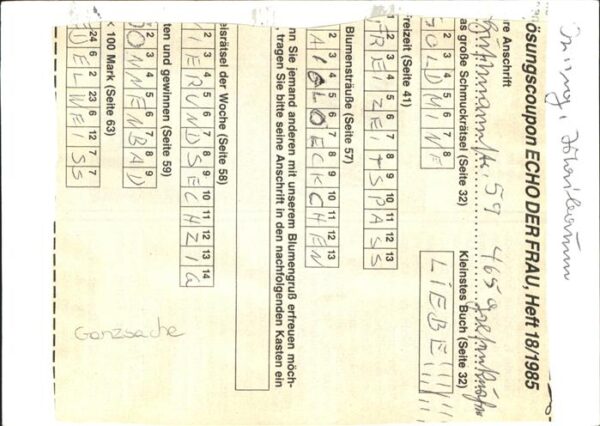 ösungscoupon ECHO DER FRAU, Heft 18/1985
re Anschrift
59 4650
as große Schmuckrätsel (Seite 32)
2 3 4 5 6 7 8
OLDMINE
Kleinstes Buch (Seite 32)
LIEBE!!!!!
reizeit (Seite 41)
2 3 4 5 6 7 8 9 10 11 12 13
REIZEITSPASS
Blumensträuße (Seite 57)
2 3 4 5 6 7 8 9 10 11 12 13
nn Sie jemand anderen mit unserem Blumengruß erfreuen möch-
, tragen Sie bitte seine Anschrift in den nachfolgenden Kasten ein
elsrätsel der Woche (Seite 58)
2 3 4 5 6 7 8 9 10 11 12 13 14
IERUNDSECHZIG
ten und gewinnen (Seite 59)
2 3 4 5 6 7 8 9
ONNENBAD
< 100 Mark (Seite 63)
24 6 2 23 6 12 7 7
DELWEISS
Ganzsache